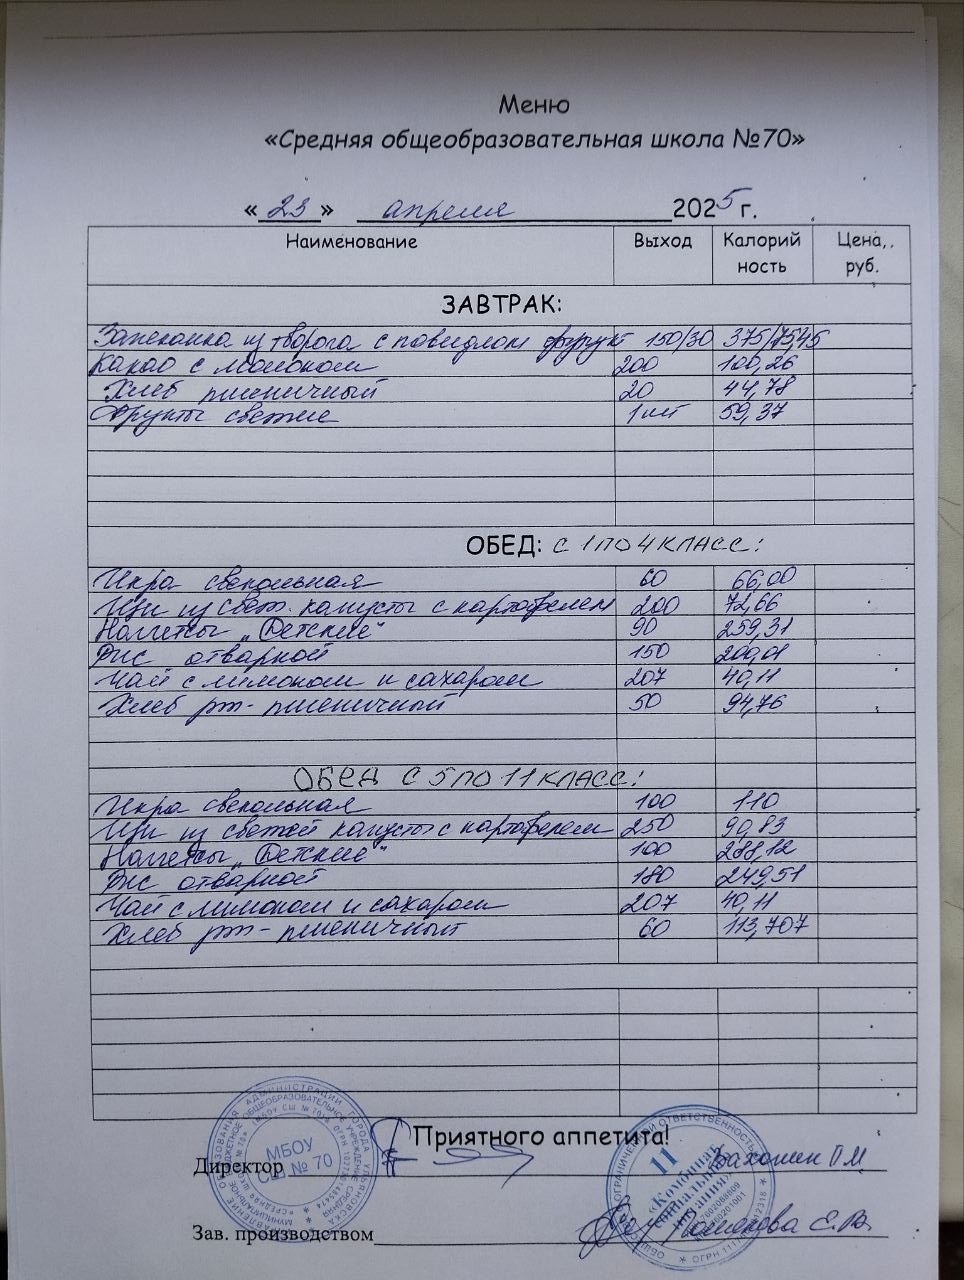 Меню
«Средняя общеобразовательная школа №70»
« 23 » апреля 2025 г.
Наименование Выход Калорий ность Цена, руб.
ЗАВТРАК:
Запеканка из творога с повидлом фрукт 150/30 375/75,45
Какао с молоком 200 100,26
Хлеб пшеничный 20 44,78
Фрукты свежие 1 шт 59,37
ОБЕД: С 1 ПО 4 КЛАСС:
Икра свекольная 60 66,00
Щи из свеж. капусты с картофелем 200 72,66
Наггетсы „Детские" 90 259,31
Рис отварной 150
Чай с лимоном и сахаром 207 40,11
Хлеб рж-пшеничный 50 94,76
ОБЕД С 5 ПО 11 КЛАСС:
Икра свекольная 100 110
Щи из свежей капусты с картофелем 250 90,83
Наггетсы „Детские" 100 288,12
Рис отварной 180 249,51
Чай с лимоном и сахаром 207 40,11
Хлеб рж-пшеничный 60 113,707
Приятного аппетита!
МБОУ
СШ № 70
Директор
11
«Комбинат
социального
питания»
Зав. производством